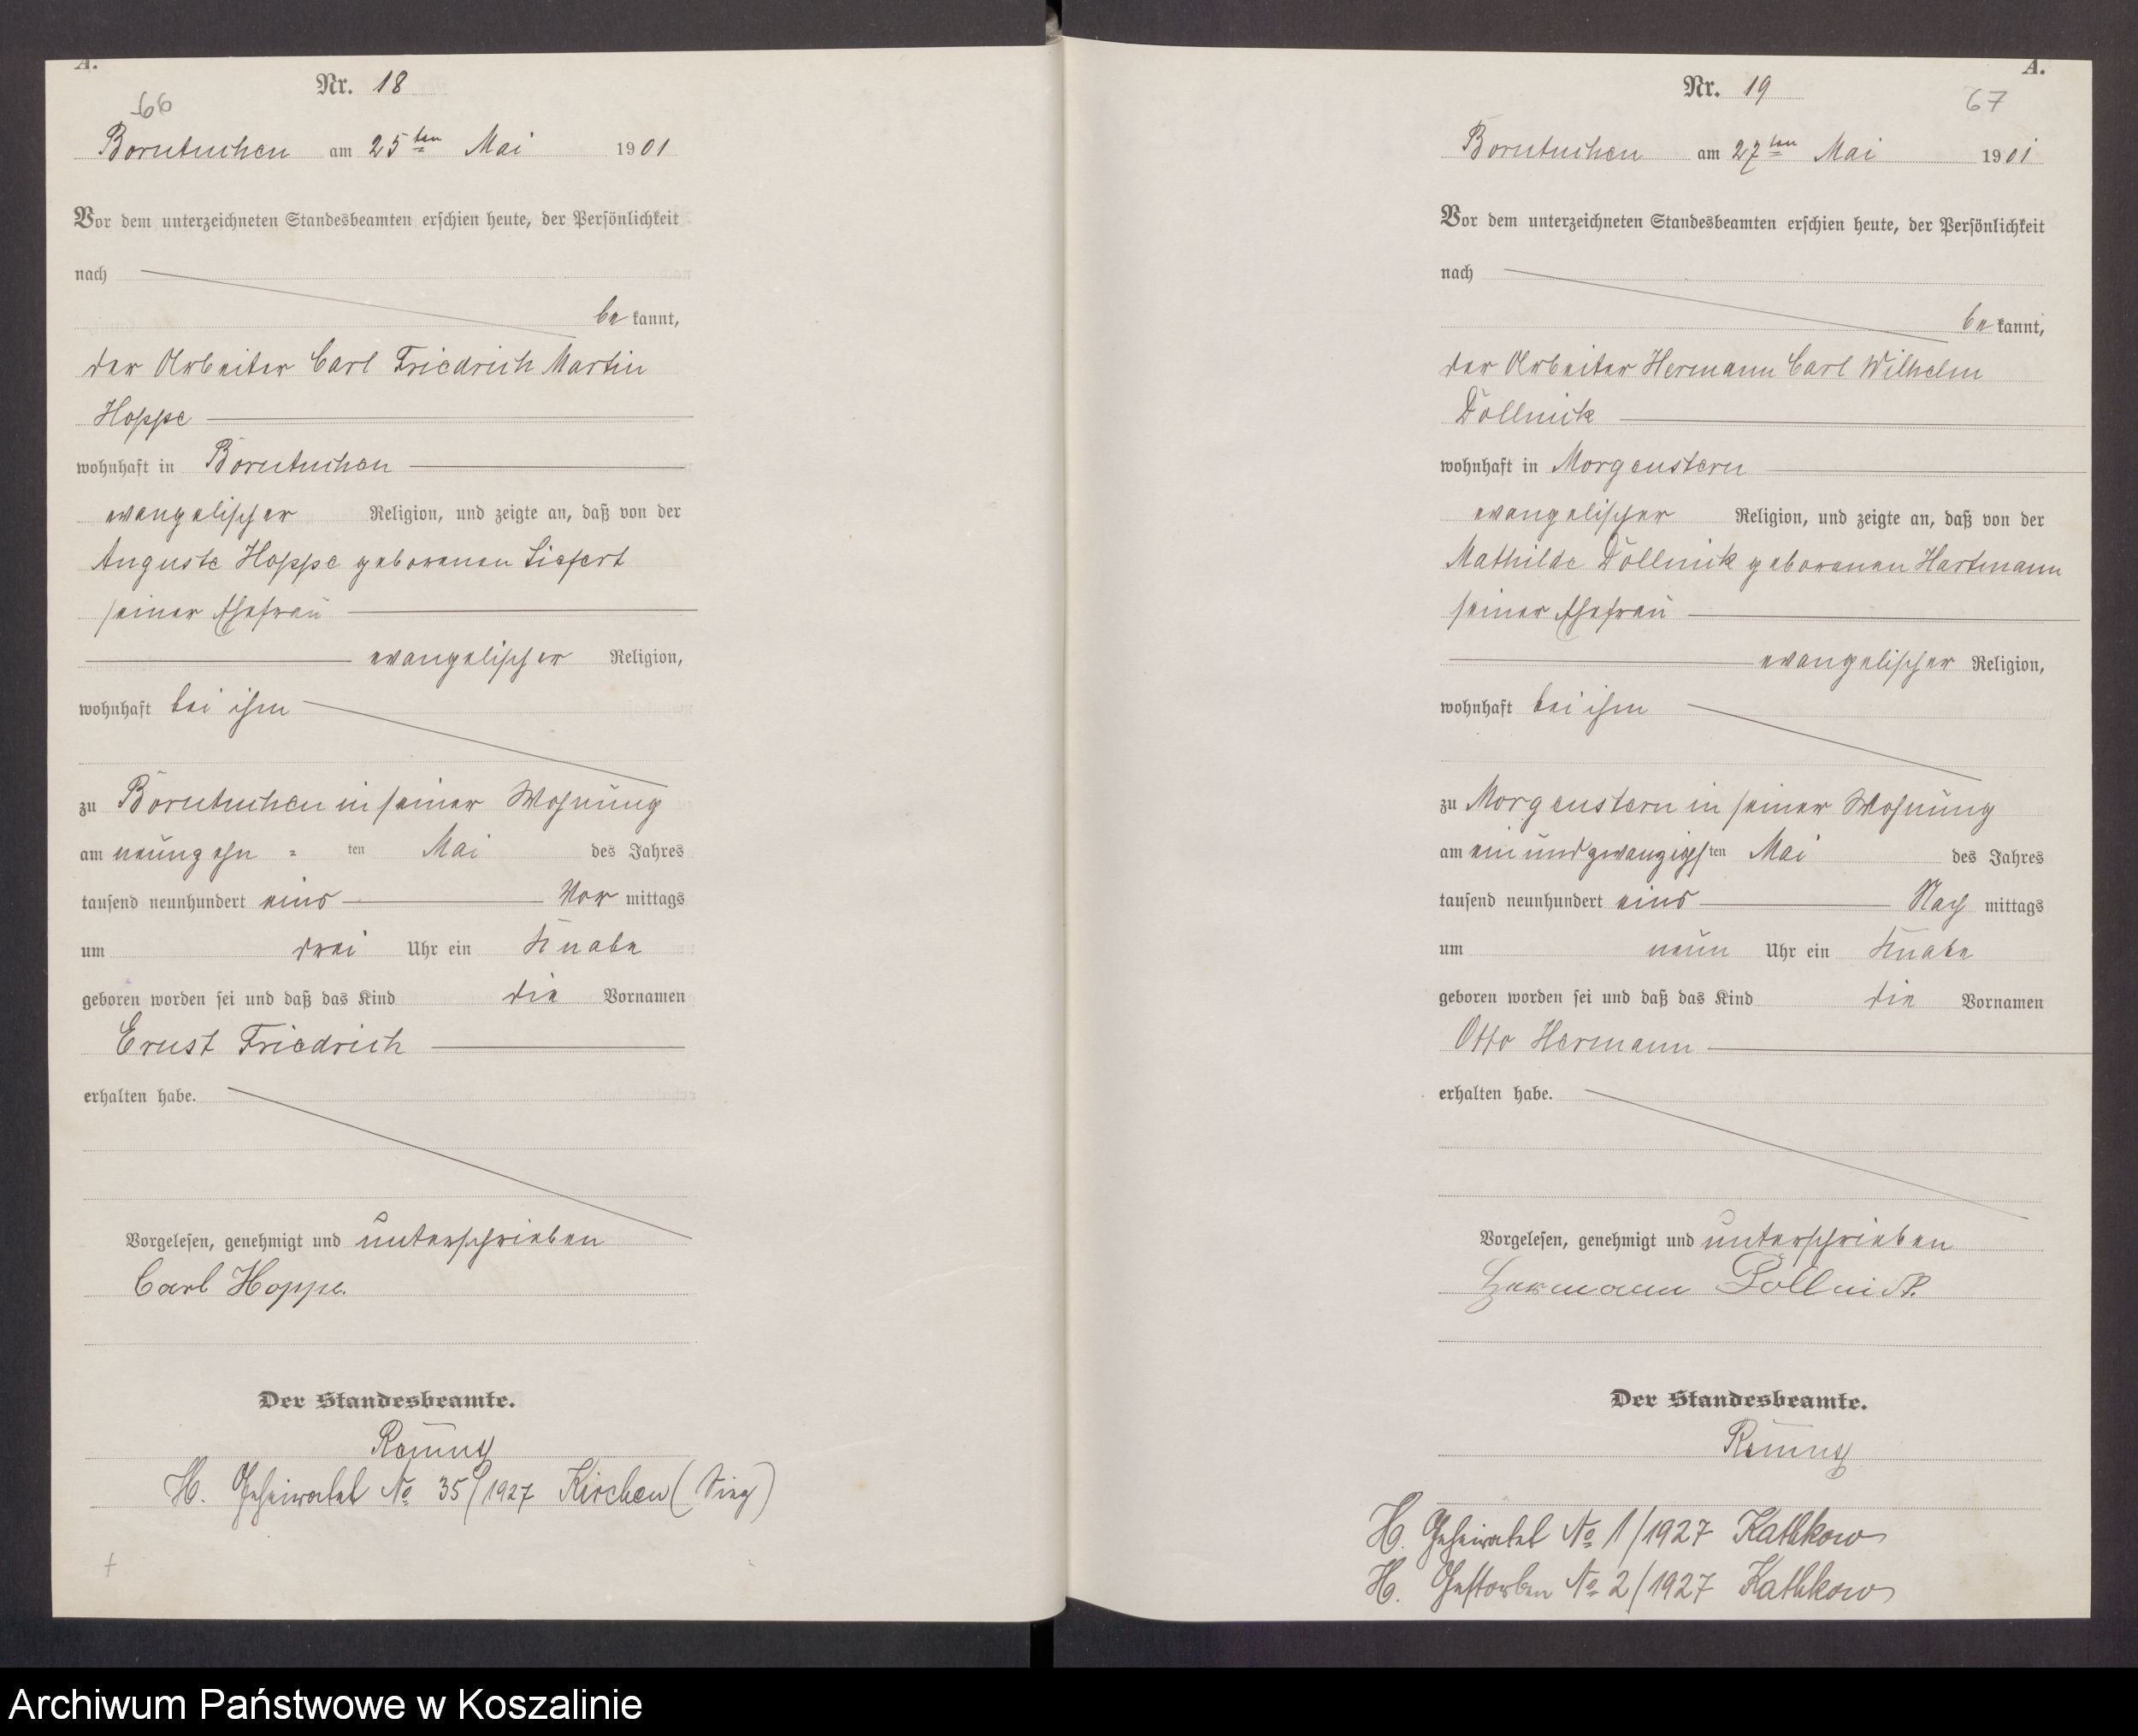 A.
Nr. 18
66
Borntuchen am 25ten Mai 1901
Vor dem unterzeichneten Standesbeamten erschien heute, der Persönlichkeit
nach
bekannt,
der Arbeiter Carl Friedrich Martin
Hoppe
wohnhaft in Borntuchen
evangelischer Religion, und zeigte an, daß von der
Auguste Hoppe geborenen Liefert
seiner Ehefrau
evangelischer Religion,
wohnhaft bei ihm
zu Borntuchen in seiner Wohnung
am neunzehn = ten Mai des Jahres
tausend neunhundert eins Vor mittags
um drei Uhr ein Knabe
geboren worden sei und daß das Kind die Vornamen
Ernst Friedrich
erhalten habe.
Vorgelesen, genehmigt und unterschrieben
Carl Hoppe.
Der Standesbeamte.
H. Geheiratet No 35/1927 Kirchen (Sieg)
A.
Nr. 19
67
Borntuchen am 27ten Mai 1901
Vor dem unterzeichneten Standesbeamten erschien heute, der Persönlichkeit
nach
bekannt,
der Arbeiter Hermann Carl Wilhelm
Dollnick
wohnhaft in Morgenstern
evangelischer Religion, und zeigte an, daß von der
Mathilde Dollnick geborenen Hartmann
seiner Ehefrau
evangelischer Religion,
wohnhaft bei ihm
zu Morgenstern in seiner Wohnung
am ein und zwanzigsten Mai des Jahres
tausend neunhundert eins Nach mittags
um neun Uhr ein Knabe
geboren worden sei und daß das Kind die Vornamen
Otto Hermann
erhalten habe.
Vorgelesen, genehmigt und unterschrieben
Hermann Dollnick.
Der Standesbeamte.
H. Geheiratet No 1/1927 Kathkow
H. Gestorben No 2/1927 Kathkow
Archiwum Państwowe w Koszalinie